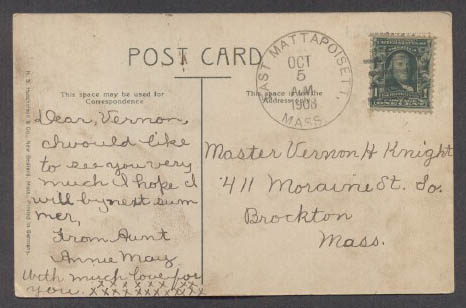 POST CARD
This space may be used for
Correspondence
This space is for the
Address only
EAST MATTAPOISETT,
OCT
5
A.M.
1908
MASS.
Dear, Vernon,
I would like
to see you very
much I hope I
will by next sum
mer,
From Aunt
Annie May
With much love for
you. XXXXXXXXXX
Master Vernon H Knight
411 Moraine St. So.
Brockton
Mass.